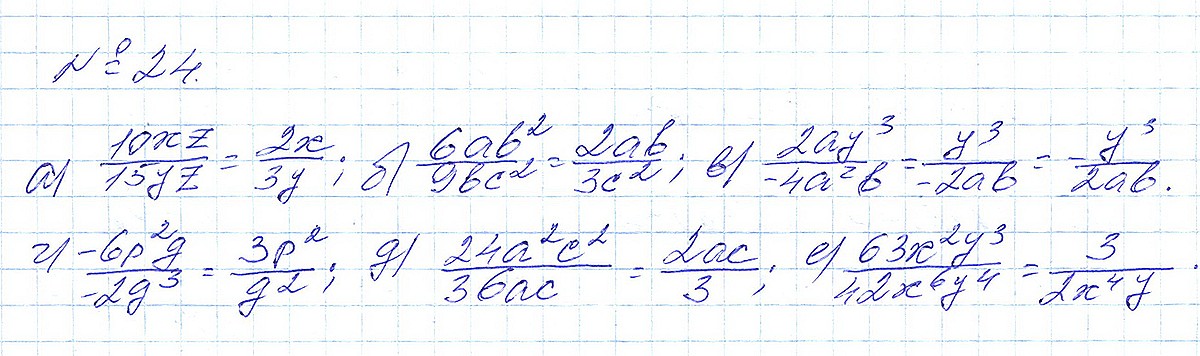 № 24.
а) 10xz/15yz = 2x/3y; б) 6ab²/9bc² = 2ab/3c²; в) 2ay³/-4a²b = y³/-2ab = -y³/2ab.
г) -6p²g/-2g³ = 3p²/g²; д) 24a²c²/36ac = 2ac/3; е) 63x²y³/42x⁶y⁴ = 3/2x⁴y.